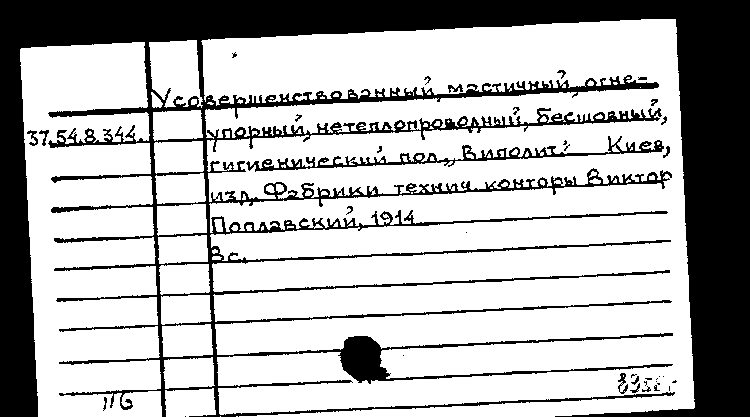 Усовершенствованный, мастичный, огне-
37.54.8.344. упорный, нетеплопроводный, бесшовный,
гигиенический пол „Виполит." Киев,
изд. Фабрики технич. конторы Виктор
Поплавский, 1914
8 с.
116